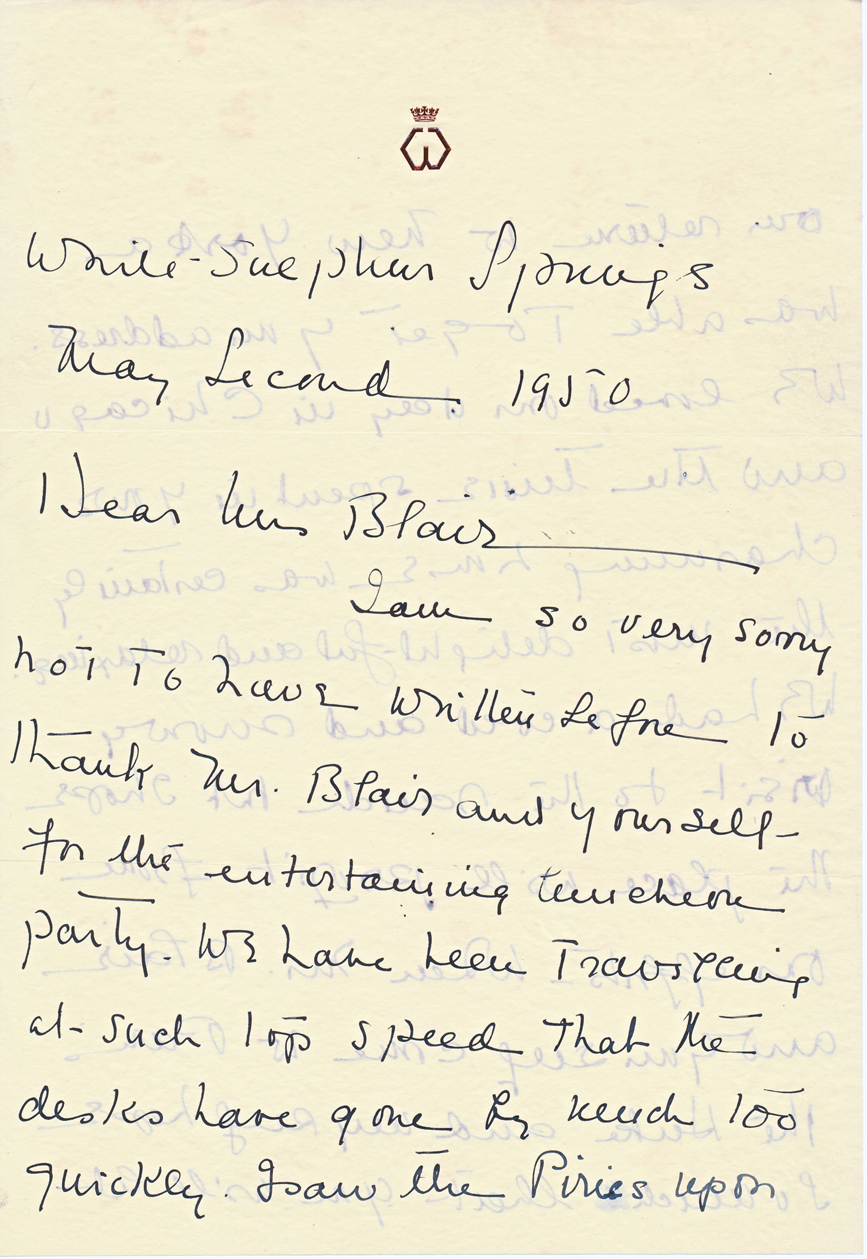 White-Sulphur Springs
May Second 1950
Dear Mrs Blair
I am so very sorry
not to have written before to
thank Mr. Blair and yourself
for the entertaining luncheon
party. We have been travelling
at such top speed that the
desks have gone by much too
quickly. I saw the Piries upon